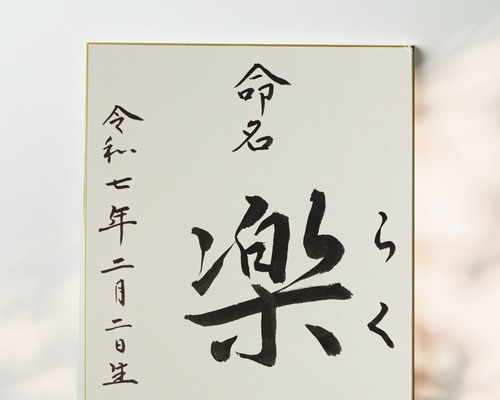 命名
楽
らく
令和七年二月二日生